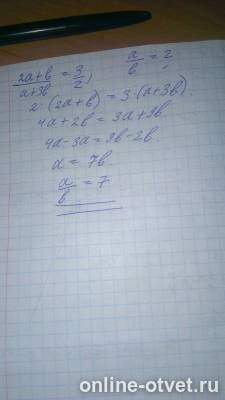 (2a+b)/(a+3b) = 3/2, a/b = ?
2·(2a+b) = 3·(a+3b).
4a+2b = 3a+9b.
4a-3a = 9b-2b.
a = 7b
a/b = 7
online-otvet.ru